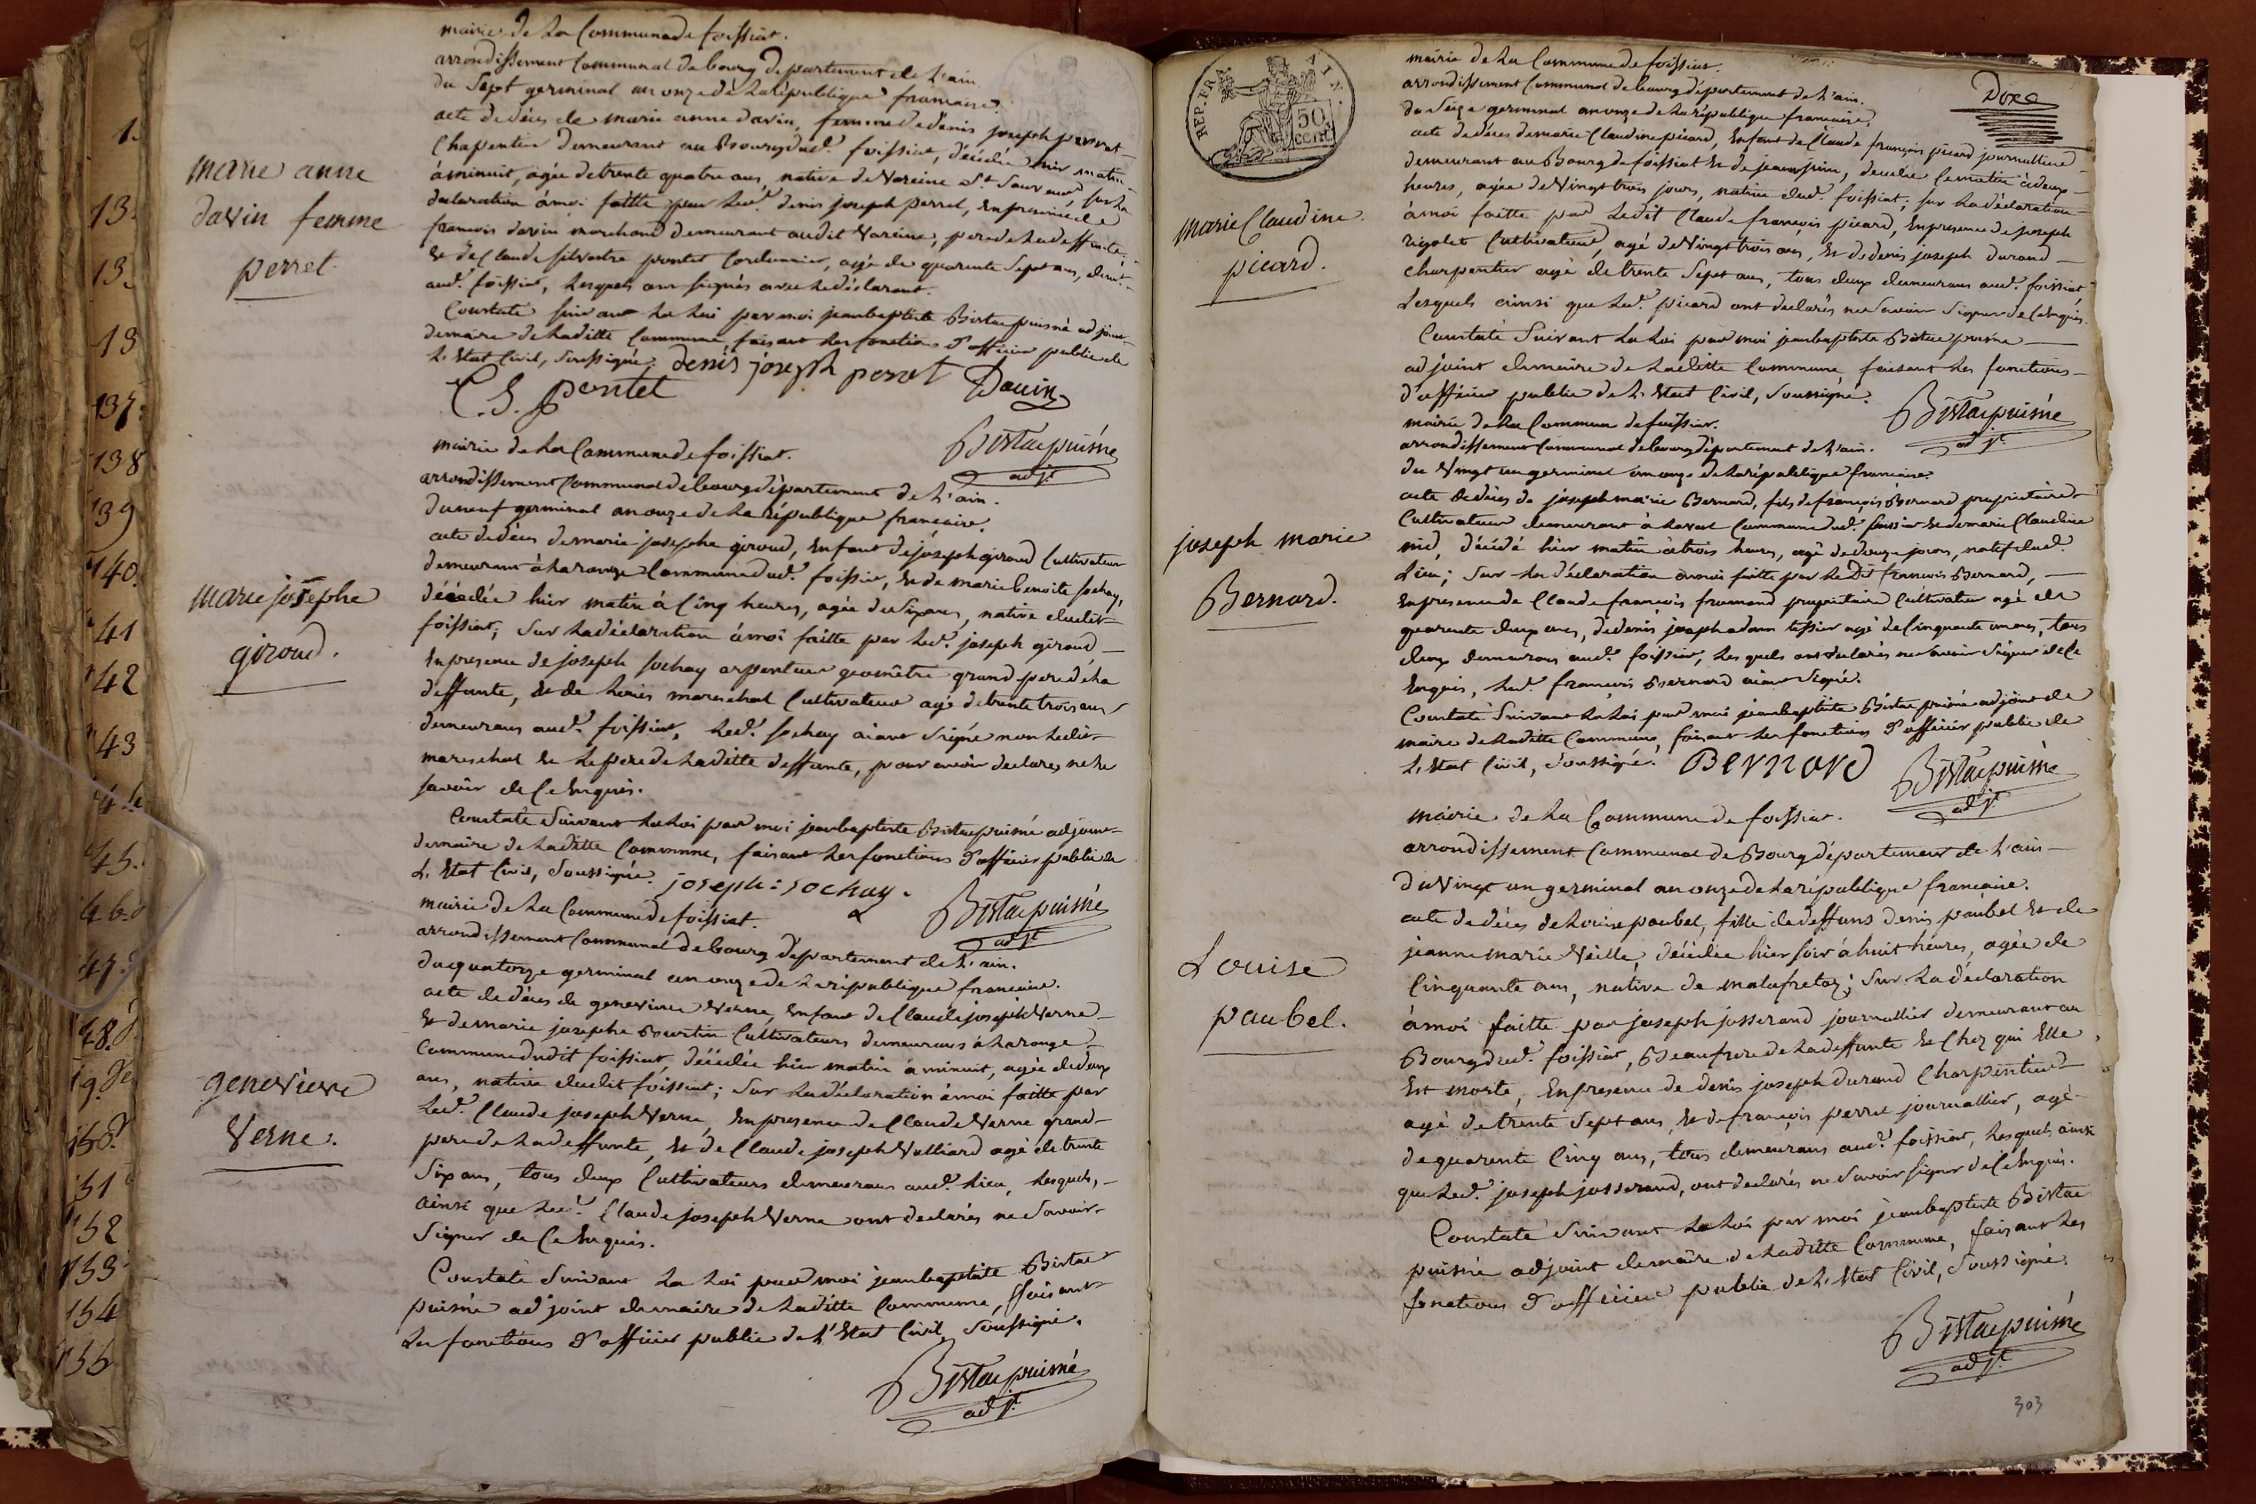 mairie de La Commune de foissiat.
arrondissement Communal de bourg departement de L'ain
du Sept germinal an onze de La republique francaise.
acte de déces de marie anne davin, femme de denis joseph perret
Charpentier demeurant au Bourg dud.t foissiat, décédée hier matin
à minuit, agée de trente quatre ans, native de Vareine St Sauveur, sur La
declaration à moi faitte par Led.t denis joseph perret, En presence de
francois davin marchand demeurant audit Vareine, pere de La deffunte
Et de Claude silvestre pontet Cordonnier, agé de quarente Sept ans, demt
aud.t foissiat, Lesquels ont signés avec Le déclarant.
Constaté suivant La Loi par moi jean baptiste Bistac puisné adjoint
de maire de Laditte Commune, faisant Les fonctions d'officier public de
L'Etat Civil, Soussigné. denis joseph perot Davin
C. S. pontet
Bistac puisné
adjt
marie anne
davin femme
perret
mairie de La Commune de foissiat.
arrondissement Communal de bourg département de L'ain.
du neuf germinal an onze de La république francaise.
acte de déces de marie josephe giroud, Enfant de joseph giroud Cultivateur
demeurant à Laronge Commune dud.t foissiat, Et de marie benoite sochay,
décédée hier matin à Cinq heures, agée de Six ans, native dudit
foissiat; Sur La déclaration à moi faitte par Led.t joseph giroud
En presence de joseph sochay arpenteur geomêtre grand pere de La
deffunte, Et de Louis mareschal Cultivateur agé de trente trois ans
demeurans aud.t foissiat, Led.t sochay aiant Signé non Ledit
mareschal Et Le pere de Laditte deffunte, pour avoir declarés ne Le
savoir de Ce Enquis.
Constaté Suivant La Loi par moi jean baptiste Bistac puisné adjoint
de maire de Laditte Commune, faisant Les fonctions d'officier public de
L'Etat Civil, Soussigné. joseph : sochay.
Bistac puisné
adjt
marie josephe
giroud.
mairie de La Commune de foissiat.
arrondissement Communal de bourg département de L'ain.
du quatorze germinal an onze de La republique francaise.
acte de déces de genevieve Verne, Enfant de Claude joseph Verne
Et de marie josephe Bourtin Cultivateurs demeurans à Laronge
Commune dudit foissiat, décédée hier matin à minuit, agée de deux
ans, native dudit foissiat; Sur La déclaration à moi faitte par
Led.t Claude joseph Verne, En presence de Claude Verne grand
pere de La deffunte, Et de Claude joseph Vulliard agé de trente
Six ans, tous deux Cultivateurs demeurans aud.t Lieu, Lesquels,
ainsi que Led.t Claude joseph Verne ont declarés ne Savoir
Signer de Ce Enquis.
Constaté Suivant La Loi par moi jean baptiste Bistac
puisné adjoint de maire de Laditte Commune, faisant
Les fonctions d'officier public de L'Etat Civil, Soussigné.
Bistac puisné
adjt
genevieve
Verne.
13.
13.
13
137.
138
139
140.
41
42
43
45.
46.
47.
48.
151
152
153
154
155
REP. FRA.
AIN.
50
cent
Doxe
mairie de La Commune de foissiat.
arrondissement Communal de bourg département de L'ain.
du Seize germinal an onze de La république francaise,
acte de déces de marie Claudine picard, Enfant de Claude françois picard journallier
demeurant au Bourg de foissiat Et de jeanne juin, décédée Ce matin à deux
heures, agée de Vingt trois jours, native dud.t foissiat; sur La déclaration
à moi faitte par Ledit Claude françois picard, En presence de joseph
rigolet Cultivateur, agé de Vingt trois ans, Et de denis joseph durand
charpentier agé de trente Sept ans, tous deux demeurans aud.t foissiat
Lesquels ainsi que Led.t picard ont declarés ne Savoir Signer de Ce Enquis.
Constaté Suivant La Loi par moi jean baptiste Bistac puisné
adjoint de maire de Laditte Commune, faisant Les fonctions
d'officier public de L'Etat Civil, Soussigné.
Bistac puisné
adjt
marie Claudine
picard.
mairie de La Commune de foissiat.
arrondissement Communal de bourg département de L'ain.
du Vingt un germinal an onze de La république francaise.
acte de déces de joseph marie Bernard, fils de françois Bernard propriétaire
Cultivateur demeurant à Lavat Commune dud.t foissiat Et de marie Claudine
nid, décédé hier matin à trois heures, agé de douze jours, natif dud.t
Lieu; Sur La déclaration à moi faitte par Ledit françois Bernard,
En presence de Claude françois fromond propriétaire Cultivateur agé de
quarente deux ans, de denis joseph adam tissier agé de Cinquante un ans, tous
deux demeurans aud.t foissiat, Lesquels ont declarés ne Savoir Signer de Ce
Enquis, Led.t françois Bernard aiant Signé.
Constaté Suivant La Loi par moi jean baptiste Bistac puisné adjoint de
maire de Laditte Commune, faisant Les fonctions d'officier public de
L'Etat Civil, Soussigné. Bernard
Bistac puisné
adjt
joseph marie
Bernard.
mairie de La Commune de foissiat.
arrondissement Communal de Bourg département de L'ain
du Vingt un germinal an onze de La république francaise.
acte de déces de Louise paubel, fille de deffuns denis paubel Et de
jeanne marie Veille, décédée hier soir à huit heures, agée de
Cinquante ans, native de malafretaz; Sur La déclaration
à moi faitte par joseph josserand journallier demeurant au
Bourg dud.t foissiat, Beaufrere de La deffunte Et Chez qui Elle
Est morte, En presence de denis joseph durand Charpentier
agé de trente Sept ans, Et de françois perret journallier, agé
de quarente Cinq ans, tous demeurans aud.t foissiat, Lesquels ainsi
que Led.t joseph josserand, ont declarés ne Savoir signer de Ce Enquis.
Constaté Suivant La Loi par moi jean baptiste Bistac
puisné adjoint de maire de Laditte Commune, faisant Les
fonctions d'officier public de L'Etat Civil, Soussigné.
Bistac puisné
adjt
Louise
paubel.
303